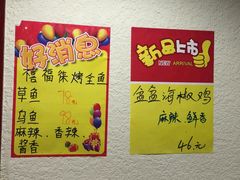 好消息
禧福徕烤全鱼
草鱼 78元
乌鱼 98元
麻辣、香辣、
酱香
新品上市
NEW ARRIVAL
盆盆海椒鸡
麻辣 鲜香
46.元